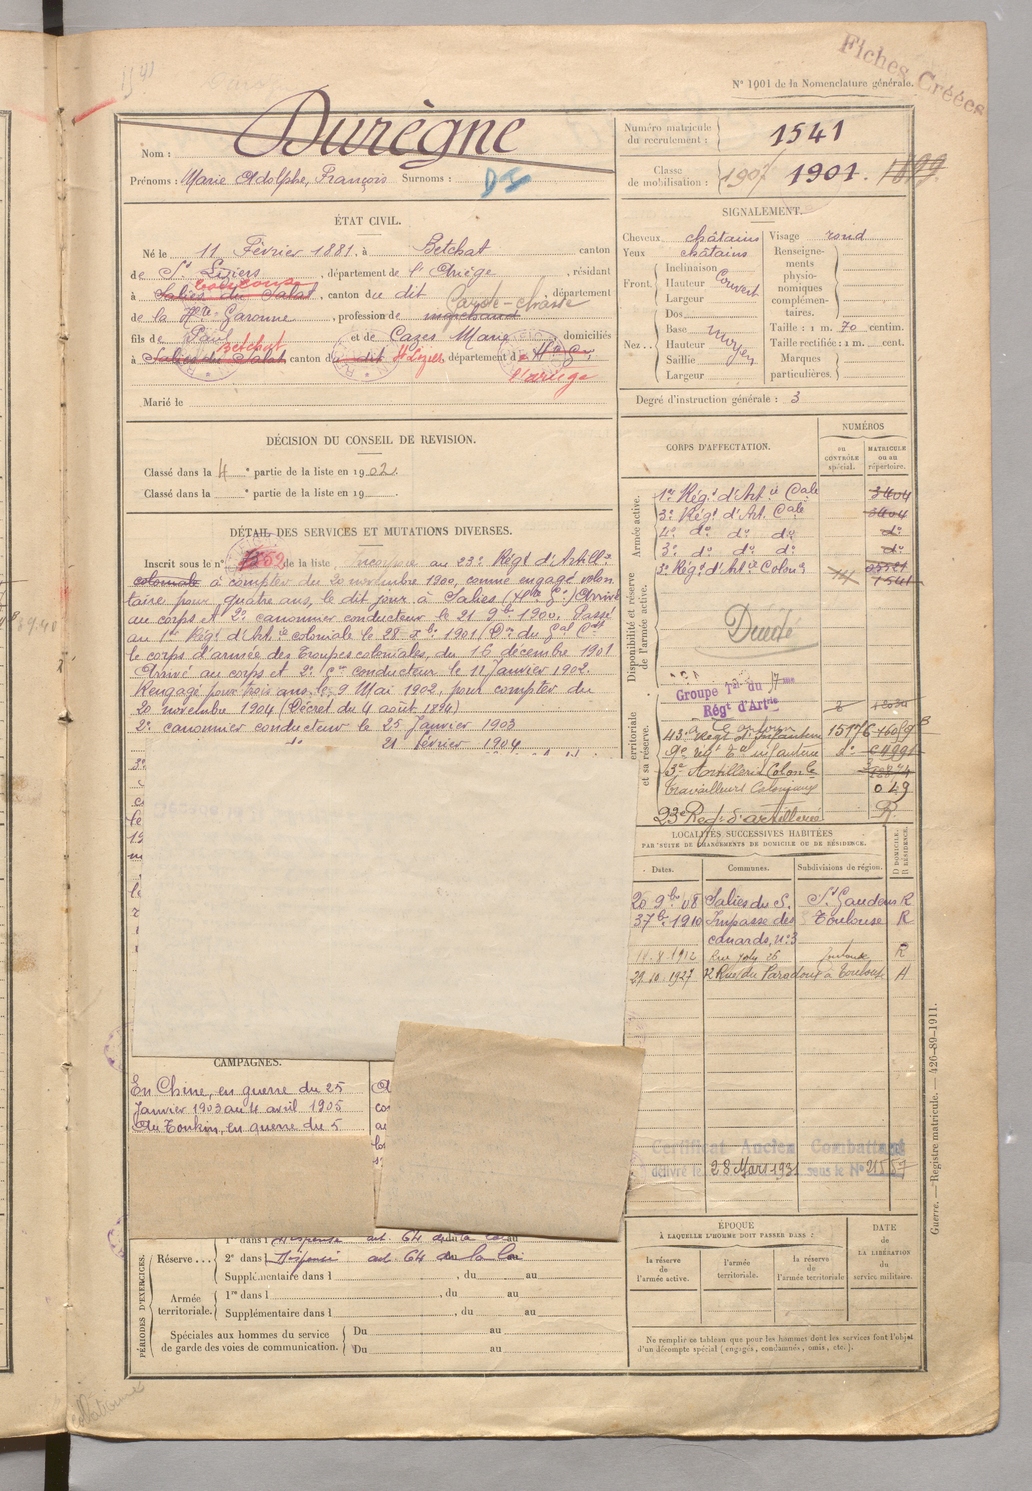 Fiches Créées
N° 1001 de la Nomenclature générale.
1541
Nom : Durègne
Prénoms : Marie Adolphe, François Surnoms :
Numéro matricule du recrutement : 1541
Classe de mobilisation : 1907 1901. 1899
ÉTAT CIVIL.
Né le 11 Février 1881, à Betchat canton
de St Liziers, département de l'Ariège, résidant
à Salies du Salat, canton du dit, département
de la Hte Garonne, profession de marchand Garde-chasse
fils de Paul et de Cazes Marie domiciliés
à Salies du Salat Betchat canton du dit St Liziers département de Hte Gar.
l'ariège
Marié le
SIGNALEMENT.
Cheveux châtains
Yeux châtains
Front. Inclinaison
Hauteur Couvert
Largeur
Nez Dos
Base moyen
Hauteur
Saillie
Largeur
Visage rond
Renseignements physionomiques complémentaires.
Taille : 1 m. 70 centim.
Taille rectifiée : 1 m. cent.
Marques particulières.
Degré d'instruction générale : 3
DÉCISION DU CONSEIL DE REVISION.
Classé dans la 4e partie de la liste en 1902.
Classé dans la e partie de la liste en 19
DÉTAIL DES SERVICES ET MUTATIONS DIVERSES.
Inscrit sous le n° 52 de la liste, incorporé au 23e Régt d'Artillie
coloniale à compter du 20 novembre 1900, comme engagé volon
taire pour quatre ans, le dit jour à Salies (Hte Gne) Arrivé
au corps et 2e canonnier conducteur le 21 9bre 1900. Passé
au 1er Régt d'Artie coloniale le 28 Xbre 1901 (Don du Gal Ct
le corps d'armée des Troupes coloniales, du 16 décembre 1901
Arrivé au corps et 2e Cer conducteur le 11 Janvier 1902.
Rengagé pour trois ans, le 9 Mai 1902, pour compter du
20 novembre 1904 (Décret du 4 août 1894)
2e canonnier conducteur le 25 Janvier 1903
do 21 février 1904
CORPS D'AFFECTATION.
NUMÉROS
au CONTRÔLE spécial.
MATRICULE ou au répertoire.
Armée active.
1er Régt d'Artie Cale 3404
3e Régt d'Art. Cale 3404
4e do do do do
3e do do do do
Disponibilité et réserve de l'armée active.
3e Régt d'Artie Colone 1541
Groupe Tal du 17me
Régt d'Artie
territoriale et sa réserve.
43e Régt d'Infanterie 15176
9e régt Tal infanterie do
3e Artillerie Colonle
travailleurs Coloniaux 049
23e Reg. d'artillerie R.
LOCALITÉS SUCCESSIVES HABITÉES
PAR SUITE DE CHANGEMENTS DE DOMICILE OU DE RÉSIDENCE.
Dates. Communes. Subdivisions de région. D DOMICILE. R RÉSIDENCE.
20 9bre 08 Salies du S. St Gaudens R
3 7bre 1910 Impasse des Toulouse R
canards, n° 3
11.8.1912 Rue Joly 26 Toulouse R
29.10.1927 à Toulouse
CAMPAGNES.
En Chine, en guerre du 25
Janvier 1903 au 4 avril 1905
Au Tonkin, en guerre du 5
Certificat Ancien Combattant
délivré le 28 Mars 1931 sous le N° 21557
PÉRIODES D'EXERCICES.
Réserve ... 1re dans l Dispensé art. 64 de la Loi du au
2e dans l Dispensé art. 64 de la loi
Supplémentaire dans l , du au
Armée territoriale. 1re dans l , du au
Supplémentaire dans l , du au
Spéciales aux hommes du service de garde des voies de communication. Du au
Du au
ÉPOQUE
À LAQUELLE L'HOMME DOIT PASSER DANS :
la réserve de l'armée active.
l'armée territoriale.
la réserve de l'armée territoriale
DATE de LA LIBÉRATION du service militaire.
Ne remplir ce tableau que pour les hommes dont les services font l'objet
d'un décompte spécial (engagés, condamnés, omis, etc.).
Guerre. — Registre matricule. — 426-89-1911.